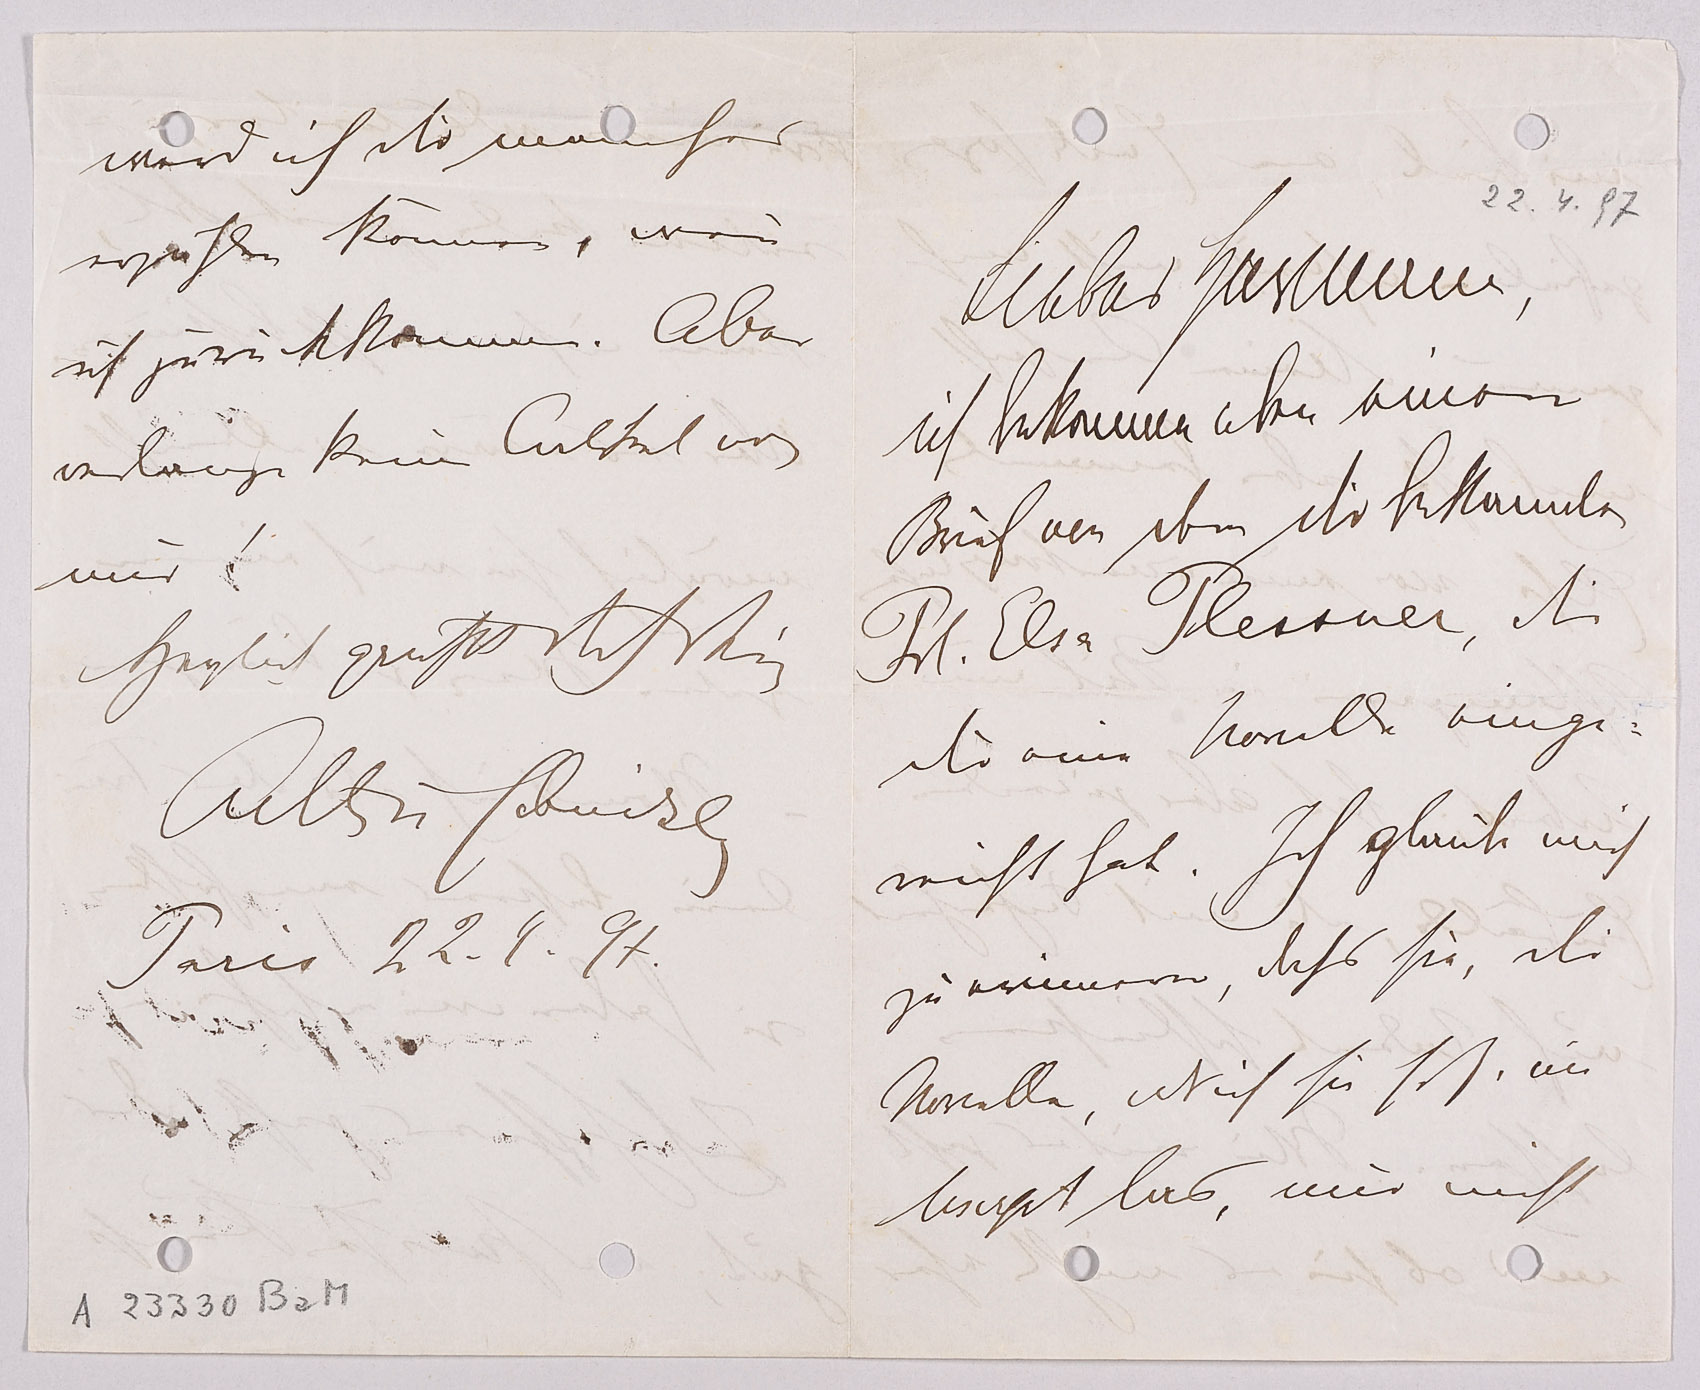 22. 4. 97
Lieber Hermann,
ich bekomme eben einen
Brief von dem dir bekannten
Frl. Elsa Plessner, die
dir eine Novelle einge=
reicht hat. Ich glaube mich
zu erinnern, dass sie, die
Novelle, als ich sie im
Mscrpt las, mir nicht
werd ich dir manches
erzählen können, wenn
ich zurückkomme. Aber
verlange keinen Artikel von
mir!
Herzlich grüßt dich dein
Arthur Schnitzler
Paris 22. 4. 97.
A 23330 BaM